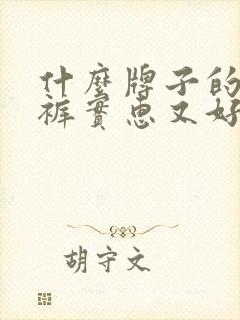 什麼牌子的
裤实惠又好
胡守文